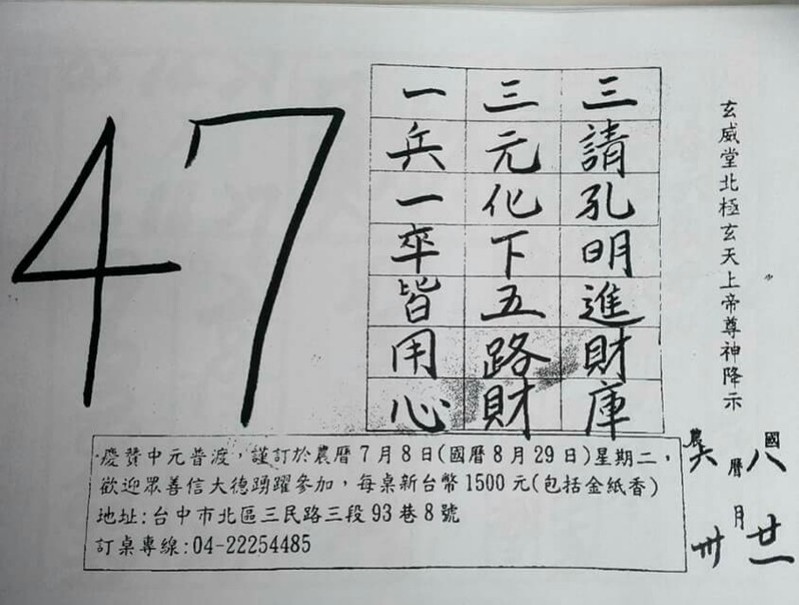 玄威堂北極玄天上帝尊神降示
國
八
曆
月
廿一
農
六
卅
三請孔明進財庫
三元化下五路財
一兵一卒皆用心
47
慶贊中元普渡，謹訂於農曆7月8日(國曆8月29日)星期二，
歡迎眾善信大德踴躍參加，每桌新台幣1500元(包括金紙香)
地址:台中市北區三民路三段93巷8號
訂桌專線:04-22254485